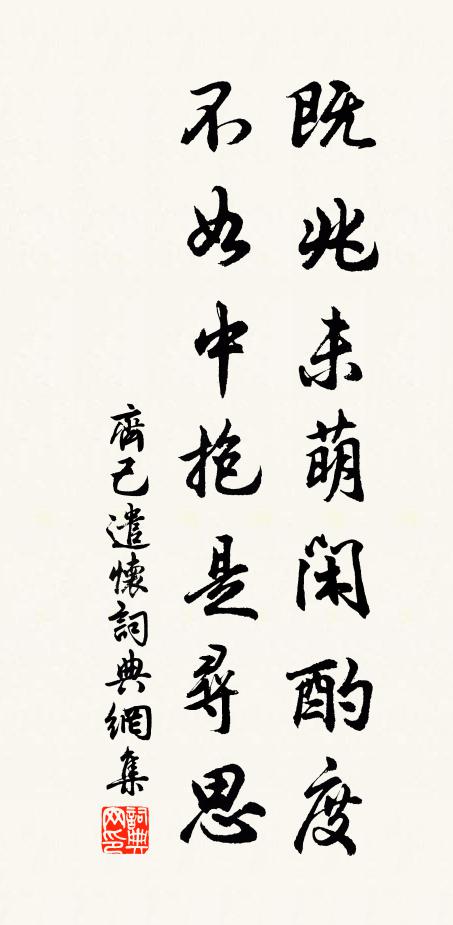 既兆未萌閑酌度
不如中抱是尋思
齊己遣懷詞典網集
詞典网印